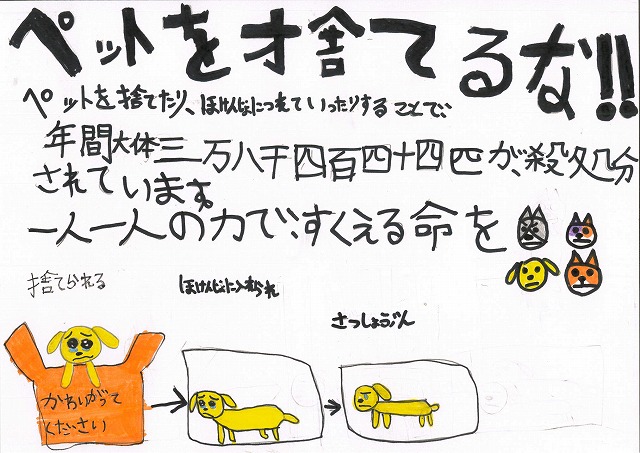 ペットをオ舎てるな!!
ペットを捨てたり、ほけんじょにつれていったりすることで、
年間大体三万八千四百四十四匹が、殺処分
されています。
一人一人の力で、すくえる命を
捨てられる
ほけんじょに入れられ
さっしょぶん
かわいがって
ください